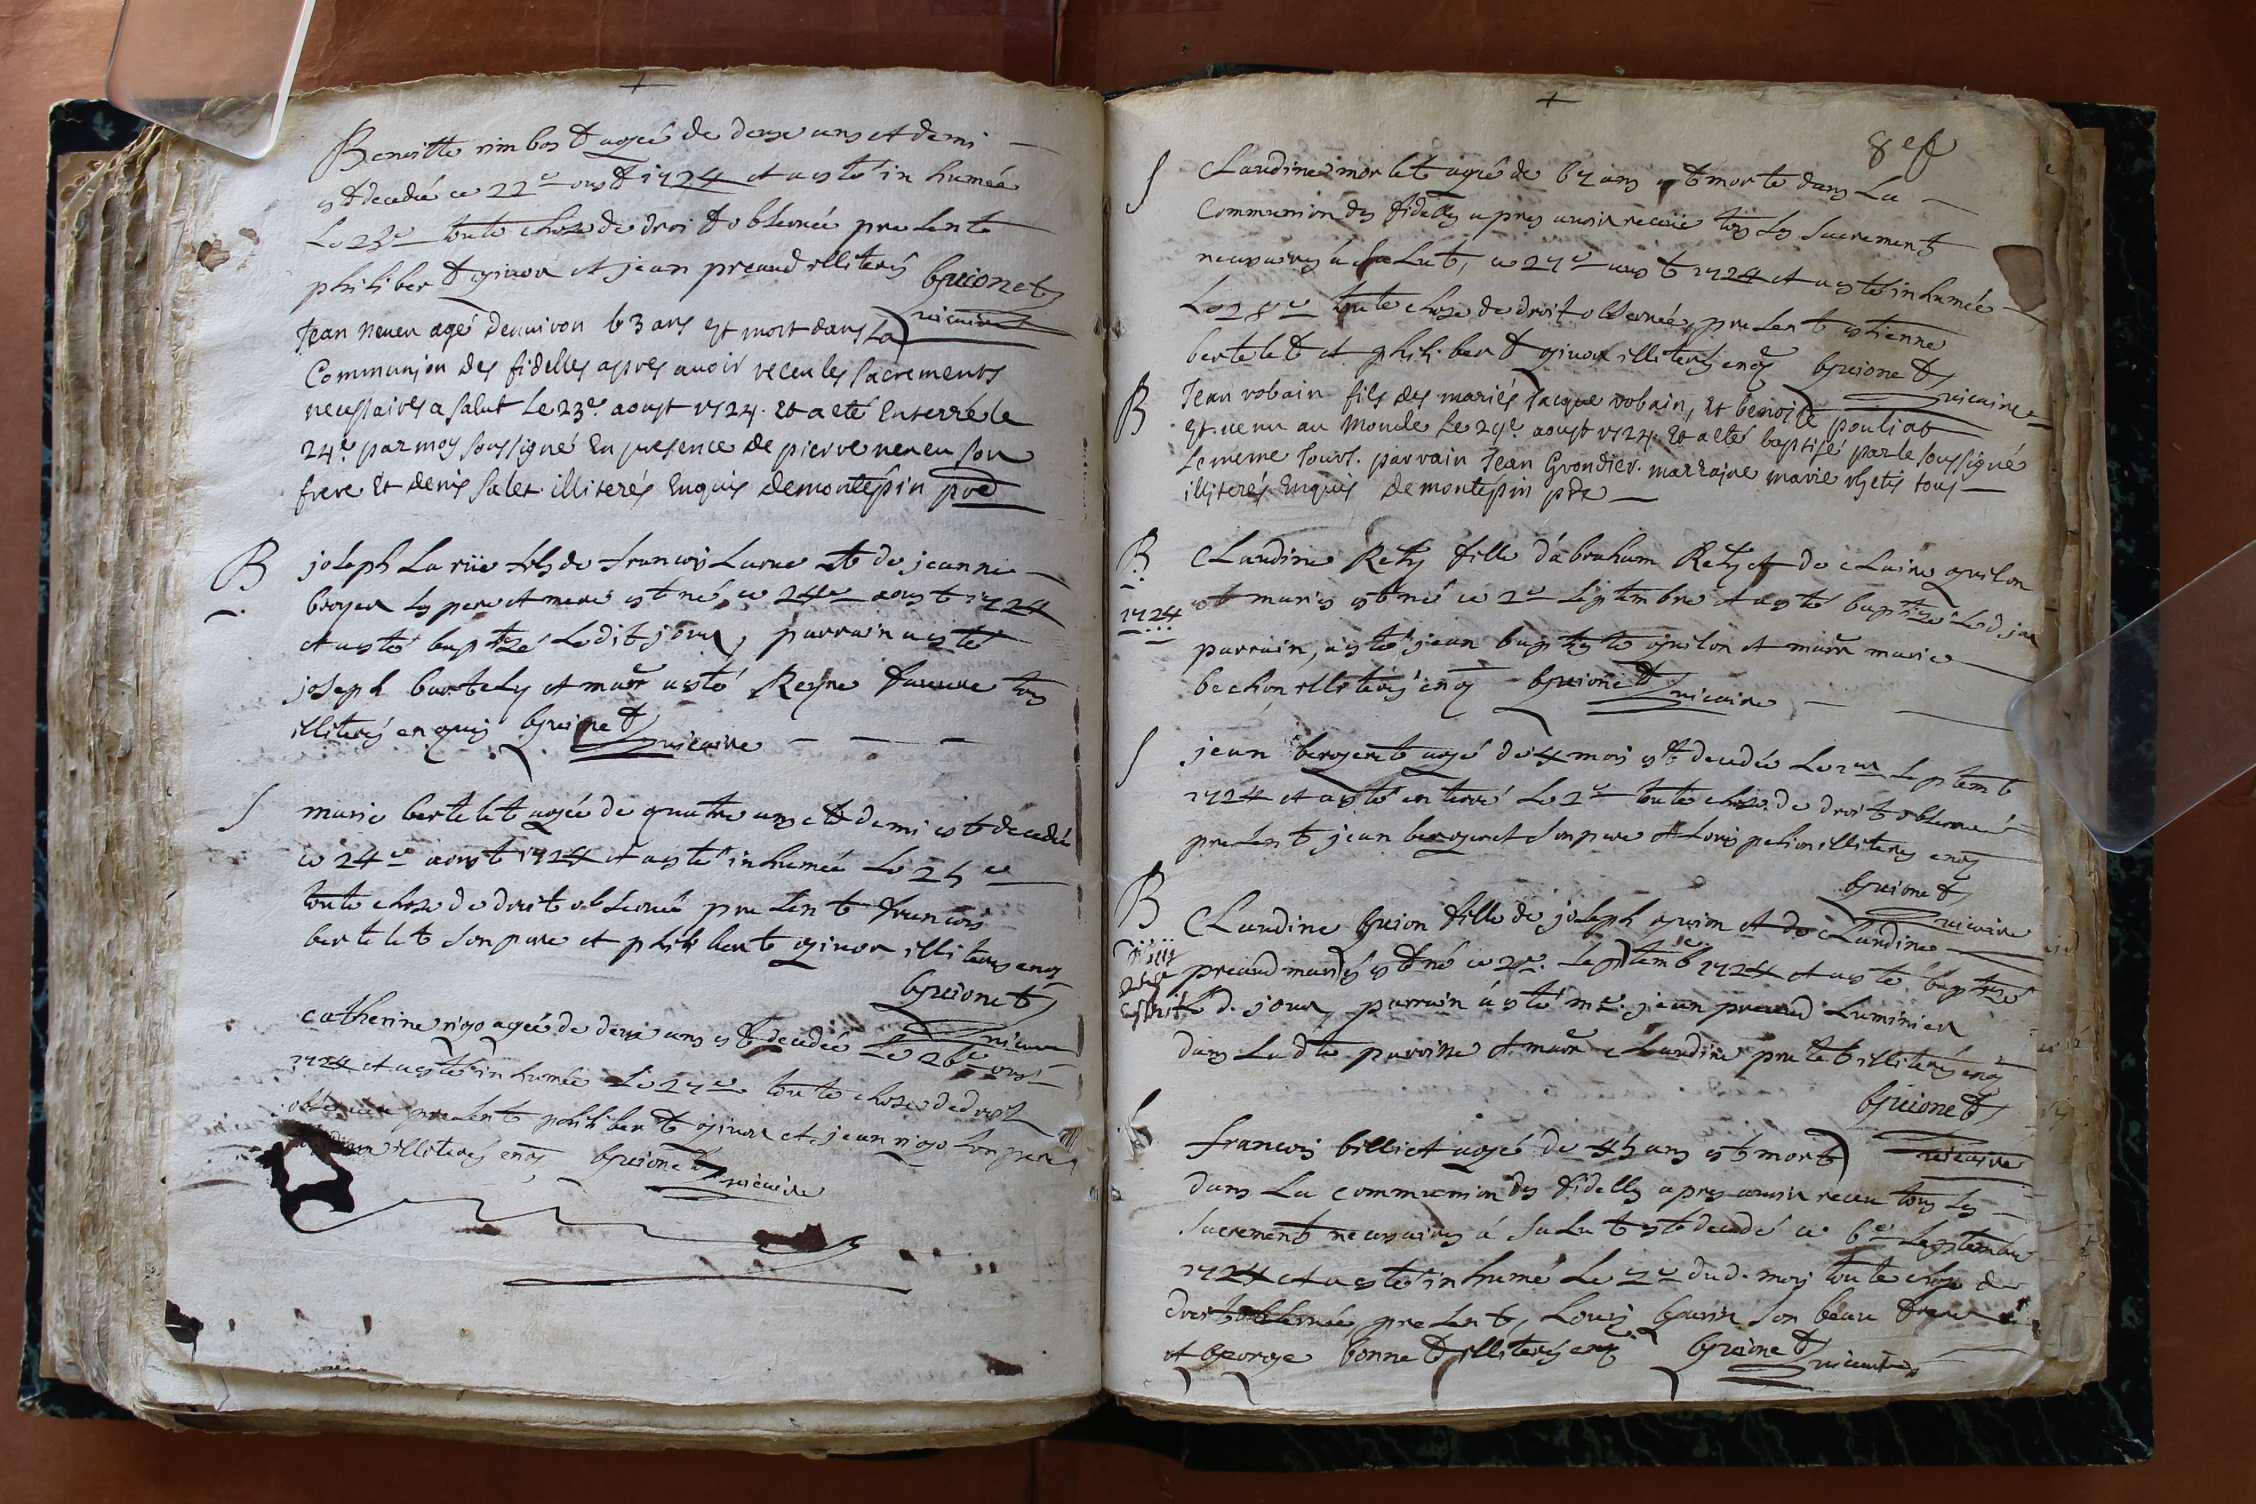 Benoitte rimbost agée de deux ans et demi
est decedée ce 22e oust 1724 et a esté inhumée
Le 23e toute chose de droit observée present
philibert giuor et jean preaud illiterés Guionet
vicaire
Jean neveu agé denviron 63 ans est mort dans La
Communion des fidelles apres avoir receu les sacrements
necessaires a salut Le 23e aoust 1724. Et a eté Enterré le
24e par moy soussigné En presence de pierre neveu son
frere Et denis salet illiterés Enquis demontespin pbr
B joseph La rüe fils de francois Larue et de jeanne
broyer les pere et mere est né ce 24e aoust 1724
et a esté baptizé Ledit jour, parrain a esté
joseph bartely et marr a esté Reyne faure tous
illiterés enquis Guionet
vicaire
S marie bertelet agée de quatre ans et demi est décedée
ce 24e aoust 1724 et a esté inhumée Le 25e
toute chose de droit observée present francois
bertelet son pere et philibert giuor illiterés enq
Guionet
vicaire
catherine rigo agée de deux ans est decedée Le 26e oust
1724 et a esté inhumée Le 27e toute chose de droit
observée present philibert giuor et jean rigo son pere
illiterés enq Guionet
vicaire
8e f
S Claudine morlet agée de 67 ans est morte dans La
Communion des fidelles apres avoir receüe tous Les Sacrement
necessaires a saLut, ce 27e oust 1724 et a esté inhumée
Le 28e toute chose de droit observée, present estienne
bertelet et philibert giuor illiterés enq Guionet
vicaire
B Jean robain fils des mariés Jacque robain, Et benoite pouliat
est venu au Monde Le 29e aoust 1724. Et a eté baptisé par le soussigné
Le meme Jour. parrain Jean Grondier. marraine marie rhetis tous
illiterés Enquis demontespin pbr
B. Claudine Rety fille d'abraham Rety et de cLaire guilon
1724 est mariés est né ce 2e septembre et a esté baptizé Led. jour
parrain, a esté jean baptiste guilon et marr marie
bechon illiterés enq Guionet
vicaire
S jean bergeret agé de 4 mois est decedée Le 1er septemb
1724 et a esté enterré Le 2e toute chose de droit observée
present jean bergeret son pere et Louis pehion illiterés enq
Guionet
vicaire
B Claudine Guion fille de joseph guion et de cLaudine
preaud mariés est né ce 2e. septemb 1724 et a esté baptizé
Led. jour parrain a esté me. jean preaud Luminier
dans Ladte parroisse et marr cLaudine pretet illiterés enq
Guionet
vicaire
francois billiet agé de 45 ans est mort
dans La communion des fidelles apres avoir receu tous Les
sacrement necessaires á saLut est decedé ce 6e septembre
1724 et a esté inhumé Le 7e dud. mois toute chose de
droit observée present, Louis Guerin son beau frere
et George bonnet illiterés enq Guionet
vicaire